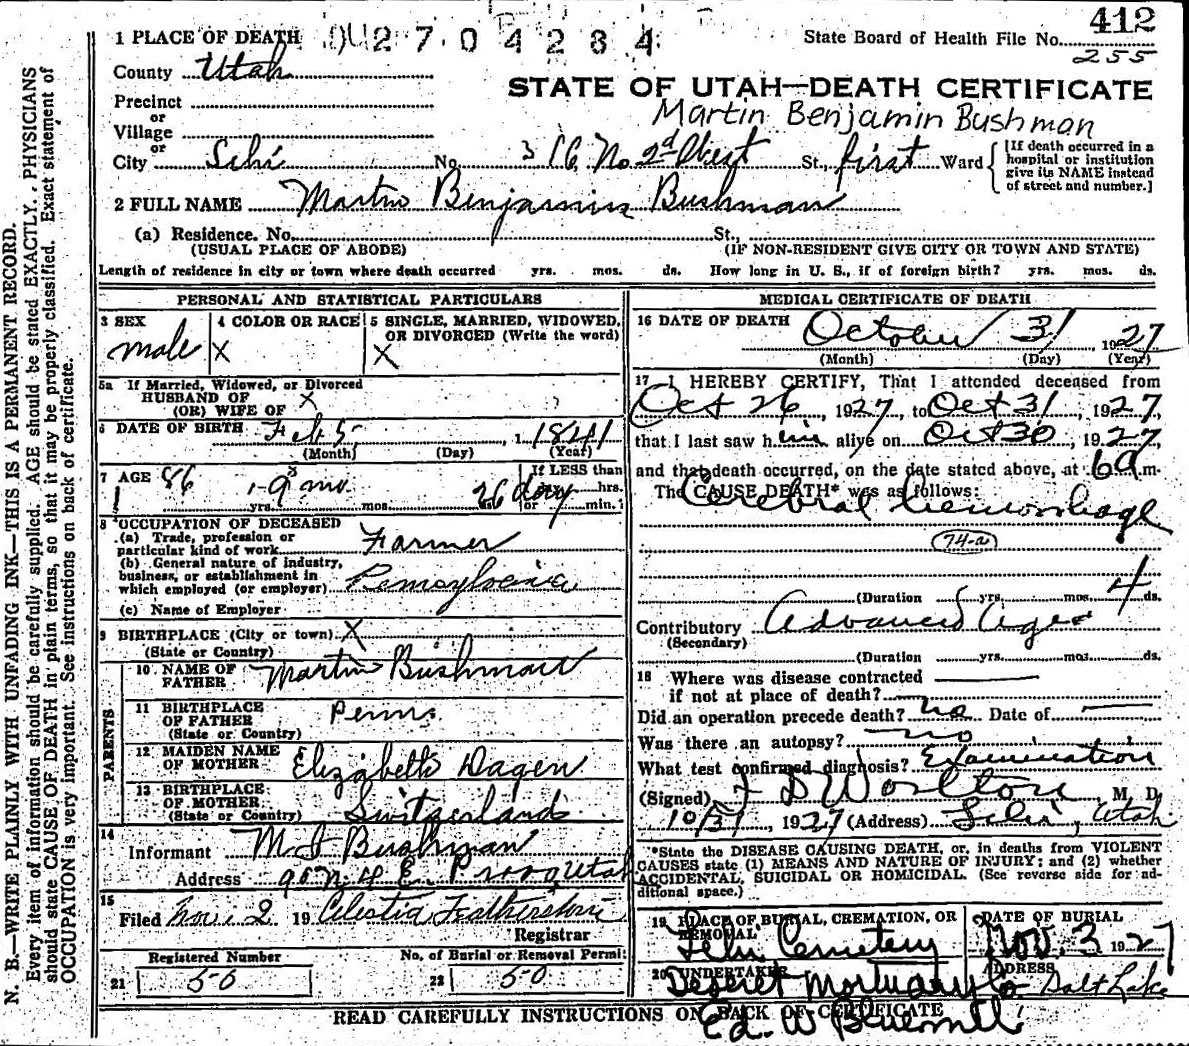 412
DU 2 7 0 4 2 8 4
State Board of Health File No. 255
1 PLACE OF DEATH
County Utah
STATE OF UTAH—DEATH CERTIFICATE
Precinct
or
Village
Martin Benjamin Bushman
or
City Lehi No. 316 No 2d West St, first Ward
[If death occurred in a hospital or institution give its NAME instead of street and number.]
2 FULL NAME Martin Benjamin Bushman
(a) Residence. No. St.,
(USUAL PLACE OF ABODE) (IF NON-RESIDENT GIVE CITY OR TOWN AND STATE)
Length of residence in city or town where death occurred yrs. mos. ds. How long in U. S., if of foreign birth? yrs. mos. ds.
PERSONAL AND STATISTICAL PARTICULARS
3 SEX male
4 COLOR OR RACE X
5 SINGLE, MARRIED, WIDOWED, OR DIVORCED (Write the word) X
5a If Married, Widowed, or Divorced
HUSBAND OF
(OR) WIFE OF X
6 DATE OF BIRTH Feb 5, 1841
(Month) (Day) (Year)
7 AGE 86 yrs. 9 mo mos. 26 days
If LESS than
hrs.
or min.
8 OCCUPATION OF DECEASED
(a) Trade, profession or particular kind of work Farmer
(b) General nature of industry, business, or establishment in which employed (or employer) Pennsylvania
(c) Name of Employer
9 BIRTHPLACE (City or town) X
(State or Country)
PARENTS
10 NAME OF FATHER Martin Bushman
11 BIRTHPLACE OF FATHER Penns.
(State or Country)
12 MAIDEN NAME OF MOTHER Elizabeth Dagen
13 BIRTHPLACE OF MOTHER
(State or Country) Switzerland
14
Informant M I Bushman
Address N 4 E. Provo Utah
15
Filed Nov. 2 19 Celestia Featherstone
Registrar
Registered Number No. of Burial or Removal Permit
21 50 22 50
MEDICAL CERTIFICATE OF DEATH
16 DATE OF DEATH October 31 1927
(Month) (Day) (Year)
17 I HEREBY CERTIFY, That I attended deceased from
Oct 26, 1927, to Oct 31, 1927,
that I last saw him alive on Oct 30, 1927,
and that death occurred, on the date stated above, at 6 a m.
The CAUSE DEATH* was as follows:
Cerebral hemorrhage
74-a
(Duration yrs. mos. 4 ds.
Contributory Advanced Age
(Secondary)
(Duration yrs. mos. ds.
18 Where was disease contracted
if not at place of death?
Did an operation precede death? no Date of
Was there an autopsy? no
What test confirmed diagnosis? Examination
(Signed) F D Worlton M. D.
10/31, 1927 (Address) Lehi, Utah
*State the DISEASE CAUSING DEATH, or, in deaths from VIOLENT
CAUSES state (1) MEANS AND NATURE OF INJURY; and (2) whether
ACCIDENTAL, SUICIDAL OR HOMICIDAL. (See reverse side for ad-
ditional space.)
19 PLACE OF BURIAL, CREMATION, OR REMOVAL
Lehi Cemetery
DATE OF BURIAL
Nov. 3 1927
20 UNDERTAKER
Deseret Mortuary Co
ADDRESS
Salt Lake
Ed. W
READ CAREFULLY INSTRUCTIONS ON BACK OF CERTIFICATE
N. B.—WRITE PLAINLY WITH UNFADING INK—THIS IS A PERMANENT RECORD.
Every item of information should be carefully supplied. AGE should be stated EXACTLY. PHYSICIANS
should state CAUSE OF DEATH in plain terms, so that it may be properly classified. Exact statement of
OCCUPATION is very important. See instructions on back of certificate.